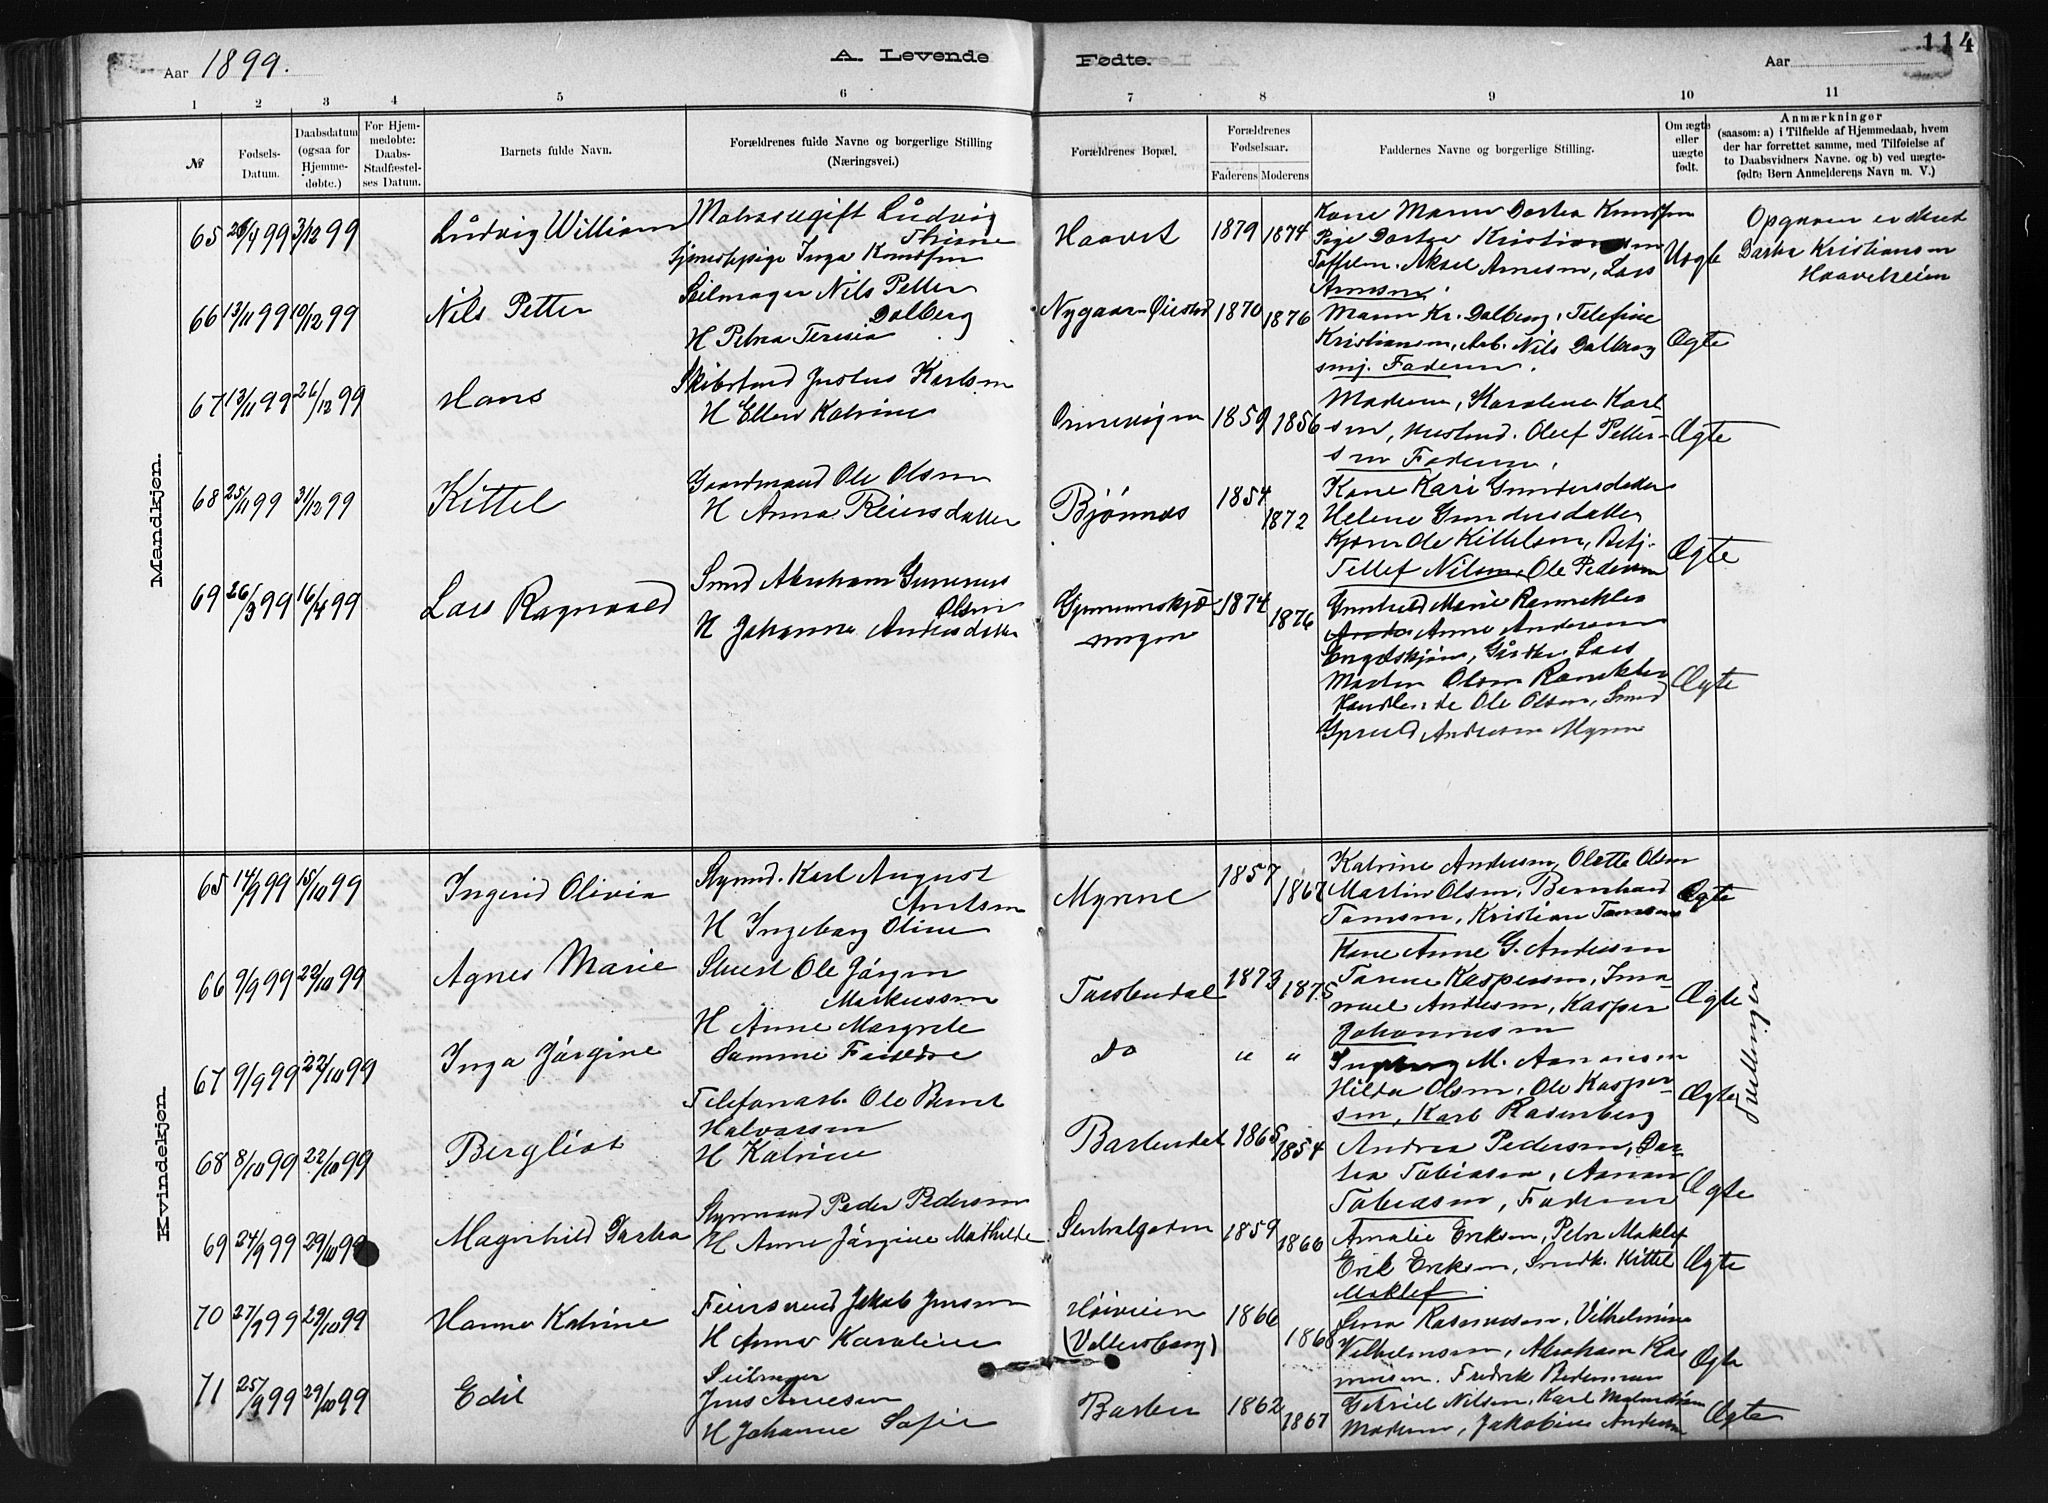 Aar 1899.
A. Levende
Fødte.
Aar
114
1 2 3 4 5 6 7 8 9 10 11
№
Fødsels-
Datum.
Daabsdatum
(ogsaa for
Hjemme-
døbte.)
For Hjem-
medøbte:
Daabs-
Stadfæstel-
ses Datum.
Barnets fulde Navn.
Forældrenes fulde Navne og borgerlige Stilling
(Næringsvei.)
Forældrenes Bopæl.
Forældrenes
Fødselsaar.
Faderens Moderens
Faddernes Navne og borgerlige Stilling.
Om ægte
eller
uægte
født.
Anmærkninger
(saasom: a) i Tilfælde af Hjemmedaab, hvem
der har forrettet samme, med Tilføielse af
to Daabsvidners Navne. og b) ved uægte-
fødte Børn Anmelderens Navn m. V.)
Mandkjøn.
65 99 3/12 99
Ludvig William
Matros ugift Ludvig
Thime
Tjenestepige Inga Knudsen
Haavet
1879 1874
Kone Maren Dorthea Knudsen
Pige Dorthea Kristiansen
Aksel Arnesen, Lars
Arnesen.
Uægte
Opgaven er
Dorthea Kristiansen
Haaveheien
66 13/11 99 10/12 99
Nils Petter
Seilmager Nils Petter
Dalberg
H Petrea Teresia
Nygaar-Øiestad
1870 1876
Maren Kr. Dalberg, Telefine
Kristiansen, Arb. Nils Dalberg
smj. Faderen.
Ægte
67 13/11 99 26/12 99
Hans
Skibstmd Justus Karlsen
H Ellen Katrine
Ormevigen
1859 1856
Moderen, Karolene Karl-
sen, Oluf Petter-
sen Faderen.
Ægte
68 25/11 99 31/12 99
Kittel
Gaardmand Ole Olsen
H Anna Reiersdatter
Bjønnes
1854 1872
Kone Kari Gundersdatter
Helene Gundersdatter
Ole Kittelsen,
Tellef Nilsen, Ole Pedersen
Ægte
69 26/3 99 16/4 99
Lars Ragnvald
Smed Abraham Gunerius
Olsen
H Johanne Andersdatter
1874 1876
Gunhild Marie Rannekleiv
Anne Andersen
Engelskjøn, Lars
Martin Olsen Rannekleiv
Handlende Ole Olsen, Smed
Andersen Myren
Ægte
Kvindekjøn.
65 14/9 99 15/10 99
Ingrid Olivia
Styrmd. Karl August
Arntsen
H Ingeborg Oline
Myrene
1857 1867
Katrine Andersen, Olette Olsen
Martin Olsen, Bernhard
Tomsen, Kristian Tomsen
Ægte
66 9/9 99 22/10 99
Agnes Marie
Stuert Ole Jørgen
Markussen
H Anne Margrete
Torsbudal
1873 1875
Kone Anne G. Andersen
Tarine Kaspersen, Ima-
nuel Andersen, Kasper
Johannesen
Ægte
Tvillinger
67 9/9 99 22/10 99
Inga Jørgine
Samme Forældre
do " "
Ingeborg M. Aanonsen
Hilda Olsen, Ole Kasper-
sen, Karl Rosenberg
Ægte
68 8/10 99 22/10 99
Bergliot
Telefonarb. Ole Bernt
Halvorsen
H Katrine
Barbudal
1865 1854
Andrea Pedersen, Dor-
tea Tobiasen, Aanon
Tobiasen, Faderen
Ægte
69 24/9 99 29/10 99
Magnhild Dorthea
Styrmand Peder Pedersen
H Anne Jørgine Mathilde
Sentralgaden
1859 1866
Amalie Eriksen, Petra Moklef
Erik Eriksen, Smdk. Kittel
Moklef.
Ægte
70 27/9 99 29/10 99
Hanna Katrine
Feiersvend Jakob Jensen
H Anna Karoline
Høiveien
(Vollersberg)
1866 1868
Lena Rasmussen, Vilhelmine
Vilhelmsen, Abraham Ras-
mussen. Fredrik Pedersen
Ægte
71 25/9 99 29/10 99
Edit
Seilmager
Jens Arnesen
H Johanne Sofie
Barbu
1862 1867
Gabriel Nilsen, Karl
Moderen, Jakobine Andersen
Ægte